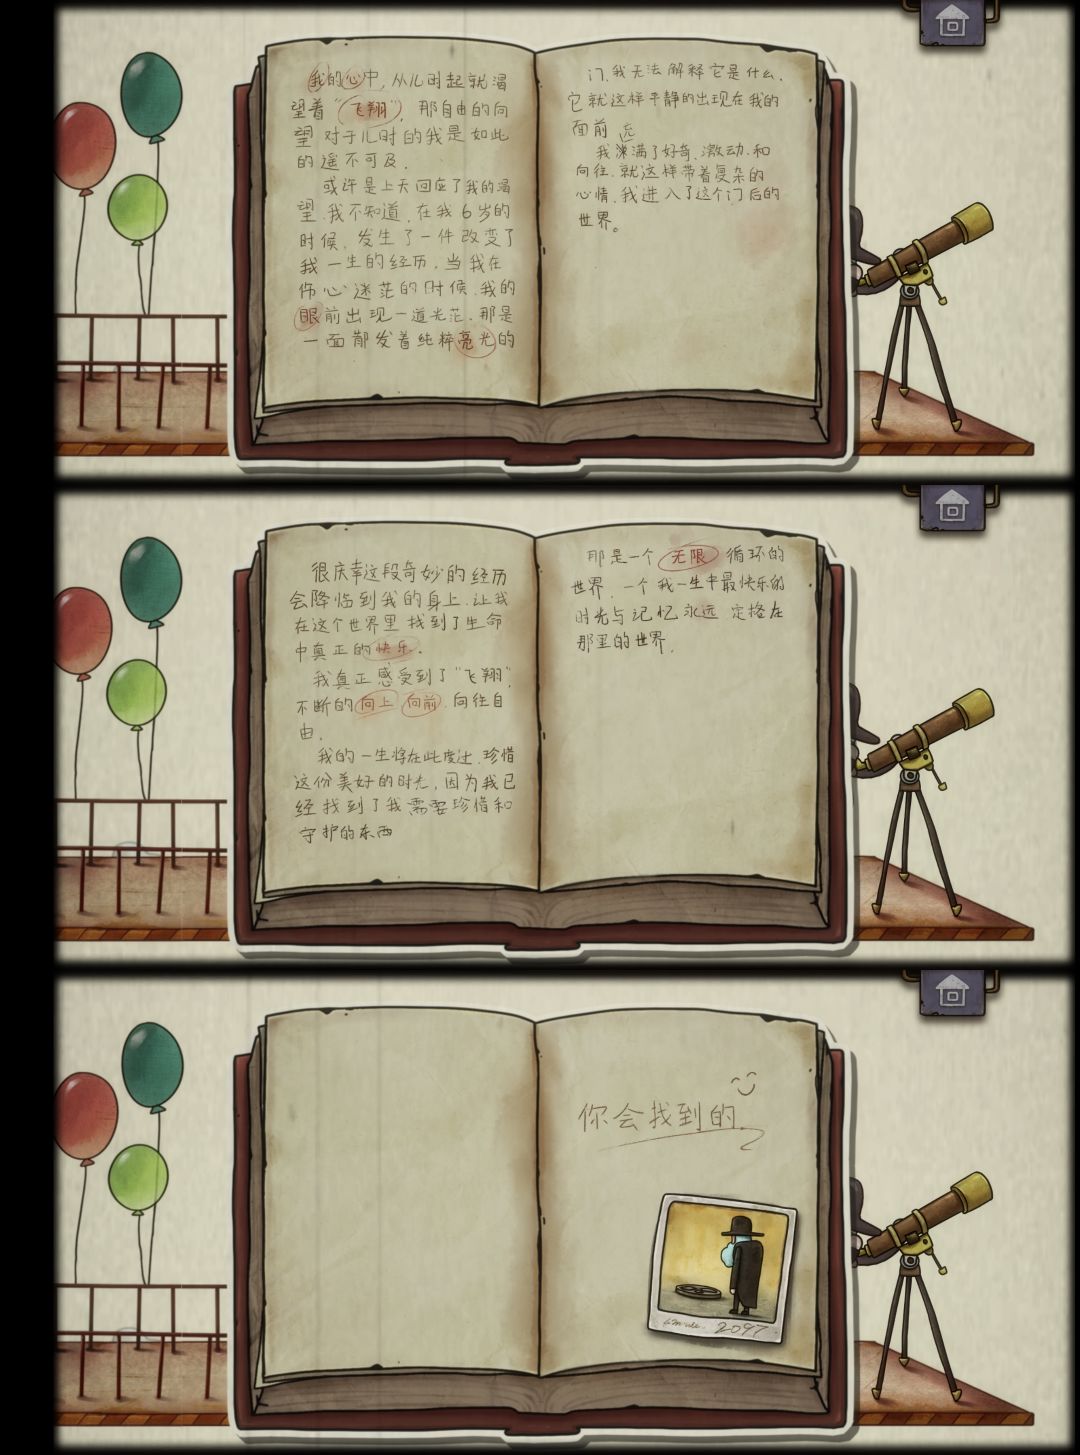 我的心中,从儿时起就渴
望着“飞翔”,那自由的向
望对于儿时的我是如此
的遥不可及.
或许是上天回应了我的渴
望.我不知道,在我6岁的
时候,发生了一件改变了
我一生的经历.当我在
伤心迷茫的时候.我的
眼前出现一道光茫.那是
一面散发着纯粹亮光的
门.我无法解释它是什么.
它就这样平静的出现在我的
面前
我充满了好奇.激动.和
向往.就这样带着复杂的
心情.我进入了这个门后的
世界。
很庆幸这段奇妙的经历
会降临到我的身上.让我
在这个世界里找到了生命
中真正的快乐.
我真正感受到了“飞翔”,
不断的向上向前.向往自
由.
我的一生将在此度过.珍惜
这份美好的时光,因为我已
经找到了我需要珍惜和
守护的东西
那是一个无限循环的
世界.一个我一生中最快乐的
时光与记忆永远定格在
那里的世界.
你会找到的
2097